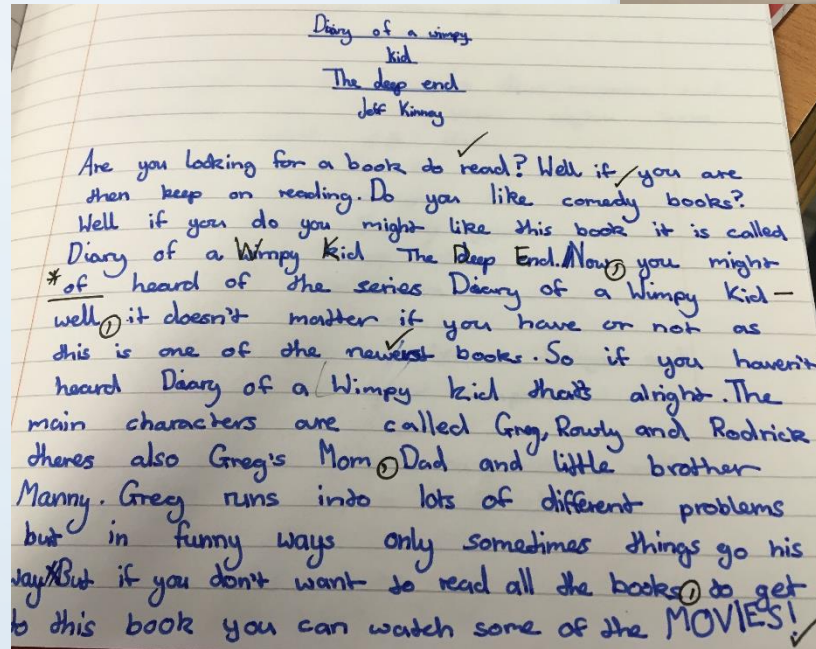 Diary of a wimpy
kid
The deep end
Jeff Kinney
Are you looking for a book to read? Well if you are
then keep on reading. Do you like comedy books?
Well if you do you might like this book it is called
Diary of a Wimpy Kid The Deep End. Now, you might
*of heard of the series Diary of a Wimpy Kid -
well, it doesn't matter if you have or not as
this is one of the newerst books. So if you haven't
heard Diary of a Wimpy kid that's alright. The
main characters are called Greg, Rowly and Rodrick
theres also Greg's Mom, Dad and little brother
Manny. Greg runs into lots of different problems
but in funny ways only sometimes things go his
way*But if you don't want to read all the books, to get
to this book you can watch some of the MOVIES!